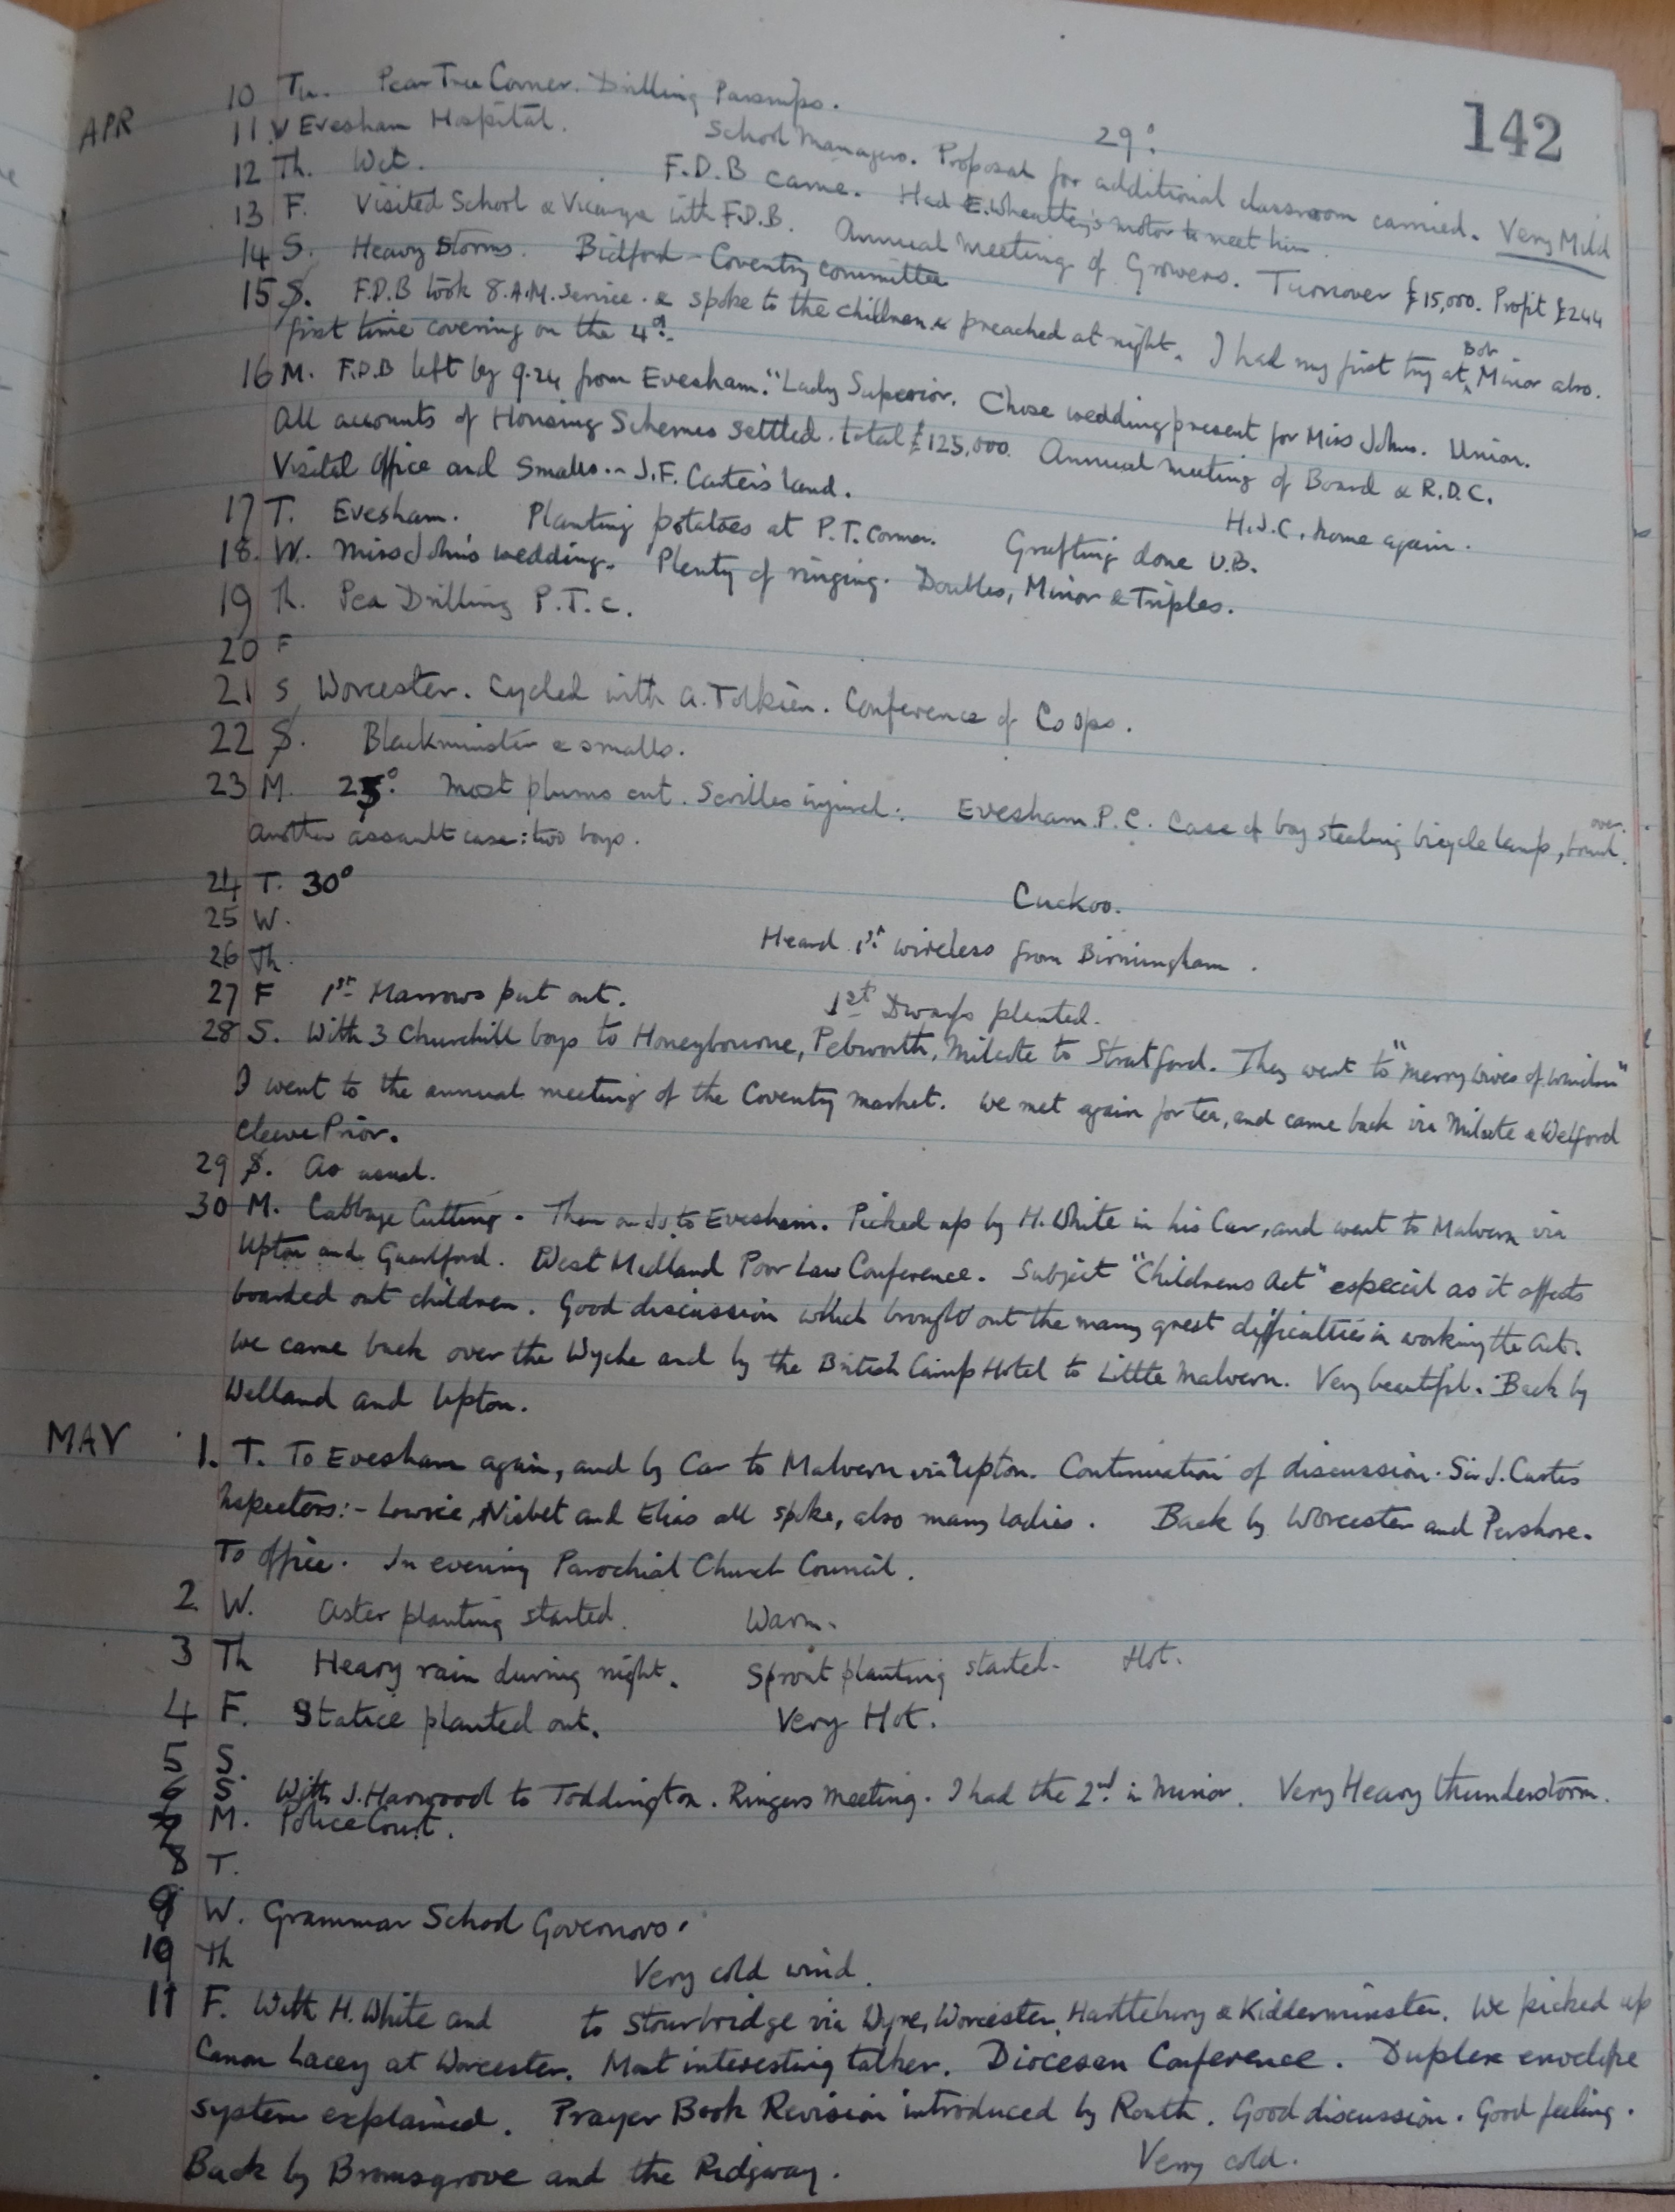 142
APR
10 Tu. Pear Tree Corner. Drilling Parsnips. 29°.
11 W Evesham Hospital. School Managers. Proposal for additional classroom carried. Very Mild
12 Th. Wet. F.D.B came. Had E. Wheatley's motor to meet him.
13 F. Visited School & Vicarage with F.D.B. Annual Meeting of Growers. Turnover £15,000. Profit £244
14 S. Heavy Storms. Bidford - Coventry Committee
15 S. F.D.B took 8.A.M. Service. & spoke to the children & preached at night. I had my first try at Bob Minor also.
first time covering on the 4th.
16 M. F.D.B left by 9.24 from Evesham. "Lady Superior. Chose wedding present for Miss Johns. Union.
All accounts of Housing Schemes settled. total £125,000. Annual meeting of Board & R.D.C.
Visited Office and Smalls. - J.F. Carter's land. H.J.C. home again.
17 T. Evesham. Planting potatoes at P.T. Corner. Grafting done U.B.
18. W. Miss John's wedding. Plenty of ringing. Doubles, Minor & Triples.
19 Th. Pea Drilling P.T.C.
20 F
21 S Worcester. Cycled with A. Tolkien. Conference of Co ops.
22 S. Blackminster & smalls.
23 M. 25°. Most plums out. Scilles injured. Evesham P.C. Case of boy stealing bicycle lamp, bound over.
Another assault case: two boys.
24 T. 30° Cuckoo.
25 W.
26 Th. Heard 1st wireless from Birmingham.
27 F 1st Marrows put out. 1st Dwarfs planted.
28 S. With 3 Churchill boys to Honeybourne, Pebworth, Milcote to Stratford. They went to "Merry Wives of Windsor"
I went to the annual meeting of the Coventry market. We met again for tea, and came back via Milcote & Welford
Cleeve Prior.
29 S. As usual.
30 M. Cabbage Cutting. Then to Evesham. Picked up by H. White in his Car, and went to Malvern via
Upton and Guarlford. West Midland Poor Law Conference. Subject "Childrens Act" especial as it affects
boarded out children. Good discussion which brought out the many great difficulties in working the Act.
We came back over the Wyche and by the British Camp Hotel to Little Malvern. Very beautiful. Back by
Welland and Upton.
MAY
1. T. To Evesham again, and by Car to Malvern via Upton. Continuation of discussion. Sir J. Curtis
Inspectors:- Lowrie, Nisbet and Elias all spoke, also many ladies. Back by Worcester and Pershore.
To office. In evening Parochial Church Council.
2 W. Aster planting started. Warm.
3 Th Heavy rain during night. Sprout planting started. Hot.
4 F. Statice planted out. Very Hot.
5 S.
6 S With J. Harwood to Toddington. Ringers Meeting. I had the 2nd in Minor. Very Heavy thunderstorm.
7 M. Police Court.
8 T.
9 W. Grammar School Governors.
10 Th Very cold wind.
11 F. With H. White and to Stourbridge via Wyre, Worcester, Hartlebury & Kidderminster. We picked up
Canon Lacey at Worcester. Most interesting talker. Diocesan Conference. Duplex envelope
system explained. Prayer Book Revision introduced by Routh. Good discussion. Good feeling.
Back by Bromsgrove and the Ridgway. Very cold.